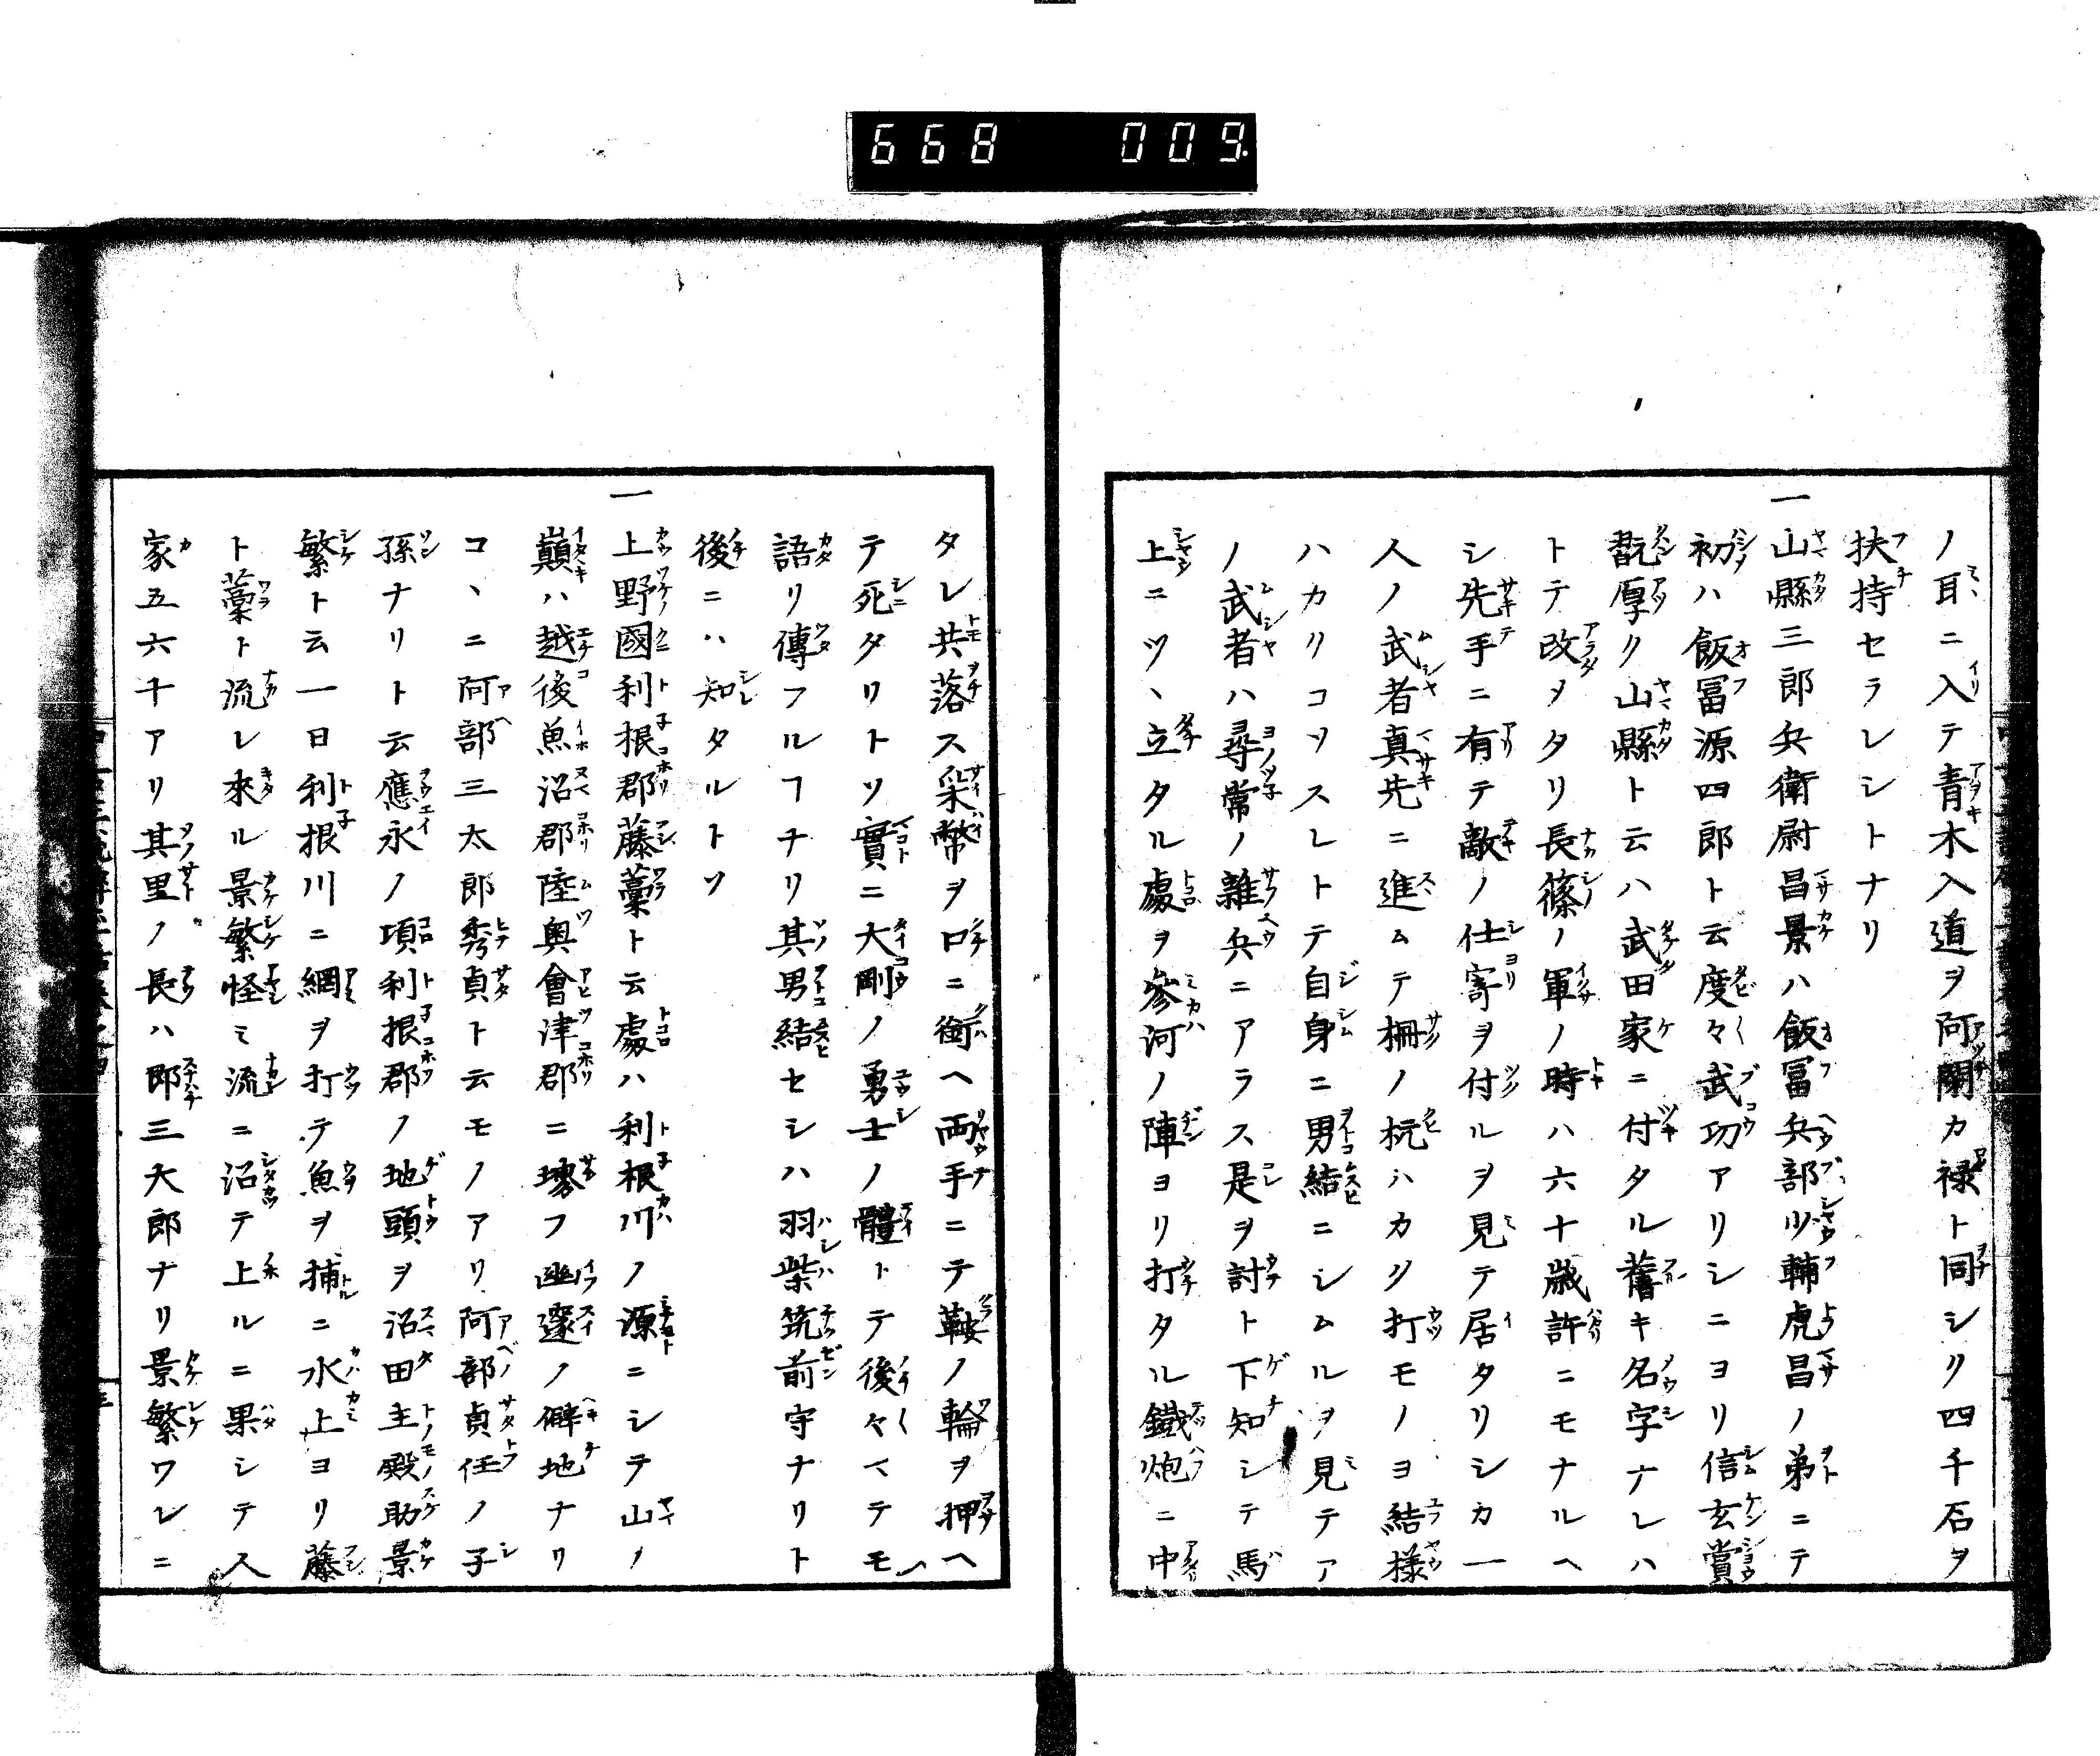 668 009.
ノ耳ニ入テ青木入道ヲ阿閉カ禄ト同シリ四千石ヲ
扶持セラレシトナリ
一山縣三郎兵衛尉昌景ハ飯冨兵部少輔虎昌ノ弟ニテ
初ハ飯冨源四郎ト云度々武功アリシニヨリ信玄賞
翫厚リ山縣ト云ハ武田家ニ付タル舊キ名字ナレハ
トテ改メタリ長篠ノ軍ノ時ハ六十歳許ニモナルヘ
シ先手ニ有テ敵ノ仕寄ヲ付ルヲ見テ居タリシカ一
人ノ武者真先ニ進ムテ柵ノ杭ハカリ打モノヨ結様
ハカリコソスレトテ自身ニ男結ニシムルヲ見テア
ノ武者ハ尋常ノ雑兵ニアラス是ヲ討ト下知シテ馬
上ニツヽ立タル處ヲ參河ノ陣ヨリ打タル鐵炮ニ中
タレ共落ス采幣ヲ口ニ銜ヘ両手ニテ鞍ノ輪ヲ押ヘ
テ死タリトソ實ニ大剛ノ勇士ノ體トテ後々マテモ
語リ傳フルフナリ其男結セシハ羽柴筑前守ナリト
後ニハ知タルトソ
一上野國利根郡藤藁ト云處ハ利根川ノ源ニシテ山ノ
巓ハ越後魚沼郡陸奥會津郡ニ堺フ幽邃ノ僻地ナリ
コヽニ阿部三太郎秀貞ト云モノアリ阿部貞任ノ子
孫ナリト云應永ノ項利根郡ノ地頭ヲ沼田主殿助景
繁ト云一日利根川ニ網ヲ打テ魚ヲ捕ニ水上ヨリ藤
ト藁ト流レ來ル景繁怪ミ流ニ沿テ上ルニ果シテ人
家五六千アリ其里ノ長ハ郎三大郎ナリ景繁ワレニ